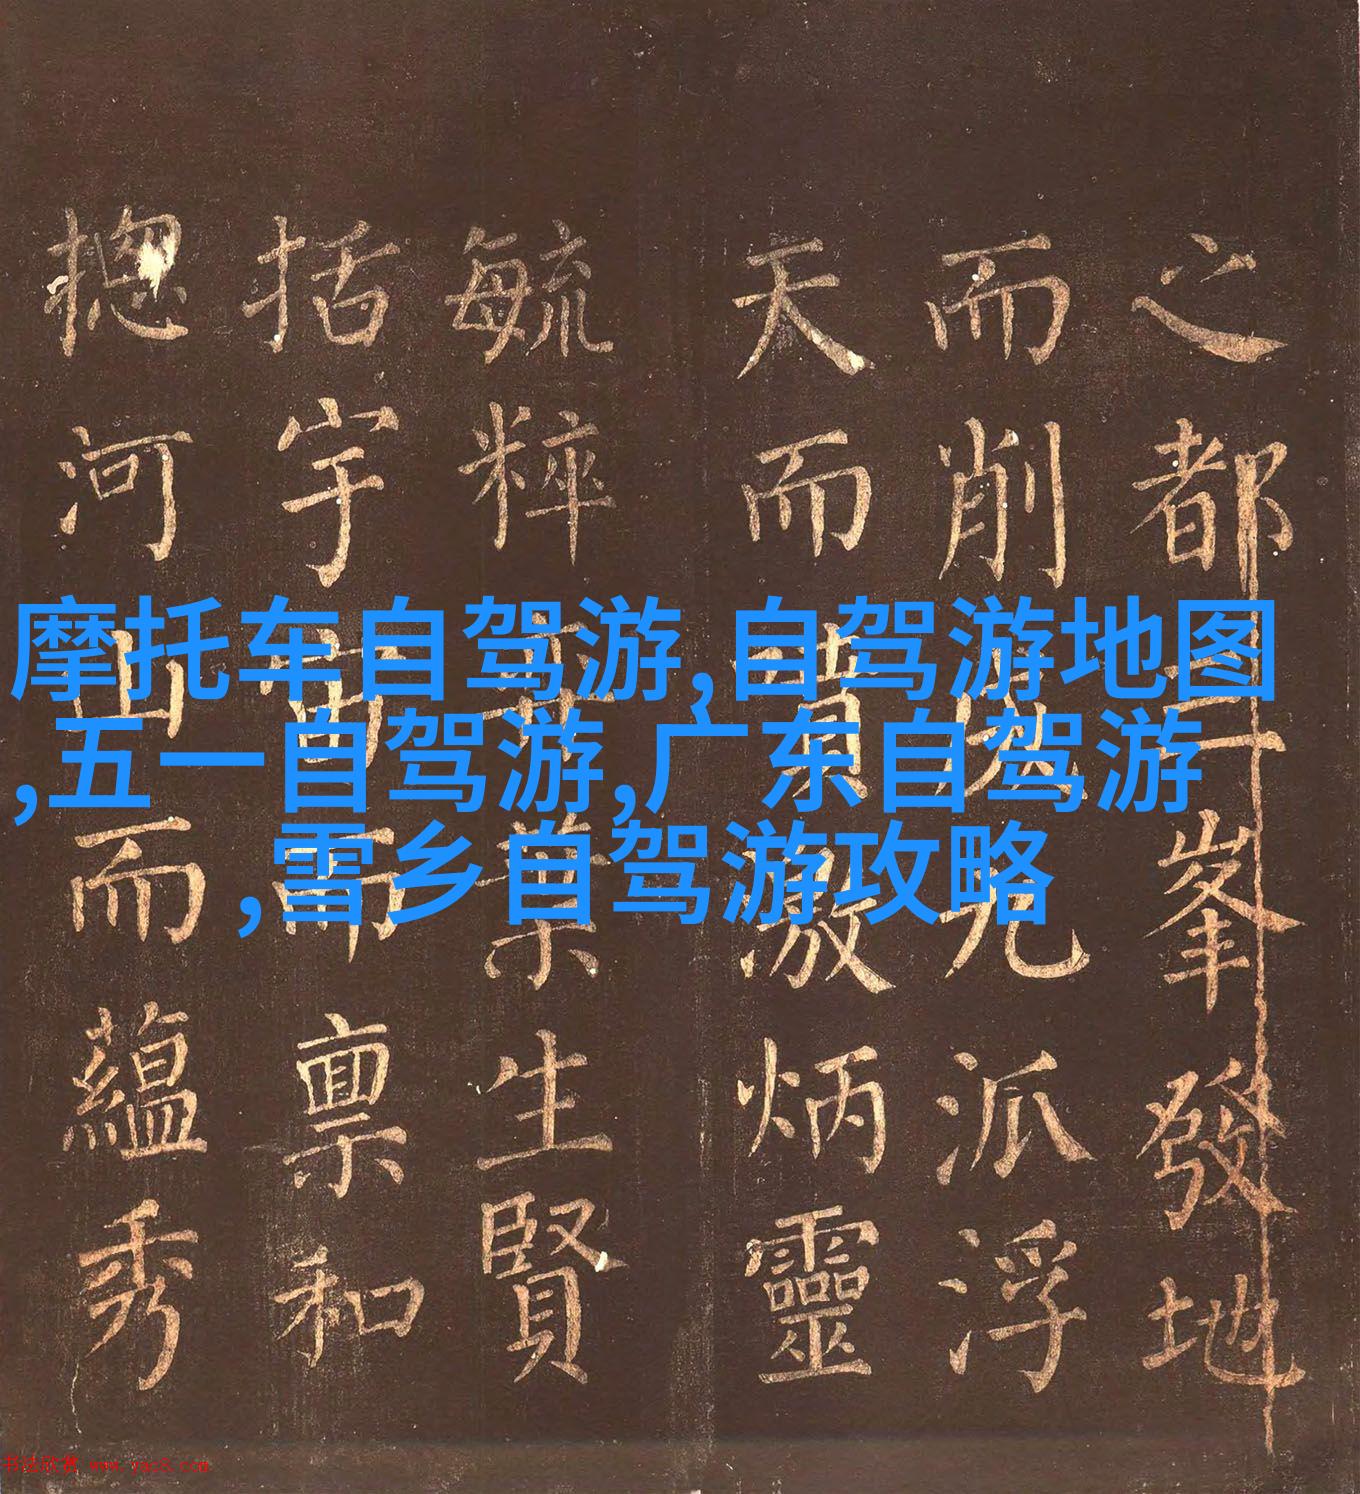 摩托车自驾游,自驾游地图
,五一自驾游,广东自驾游
,雪乡自驾游攻略
之都峯發地
而削九派浮
天而激炳靈
毓粹生賢
括宇宙而禀和
揔河山而蘊秀
书法欣赏 www.yac8.com